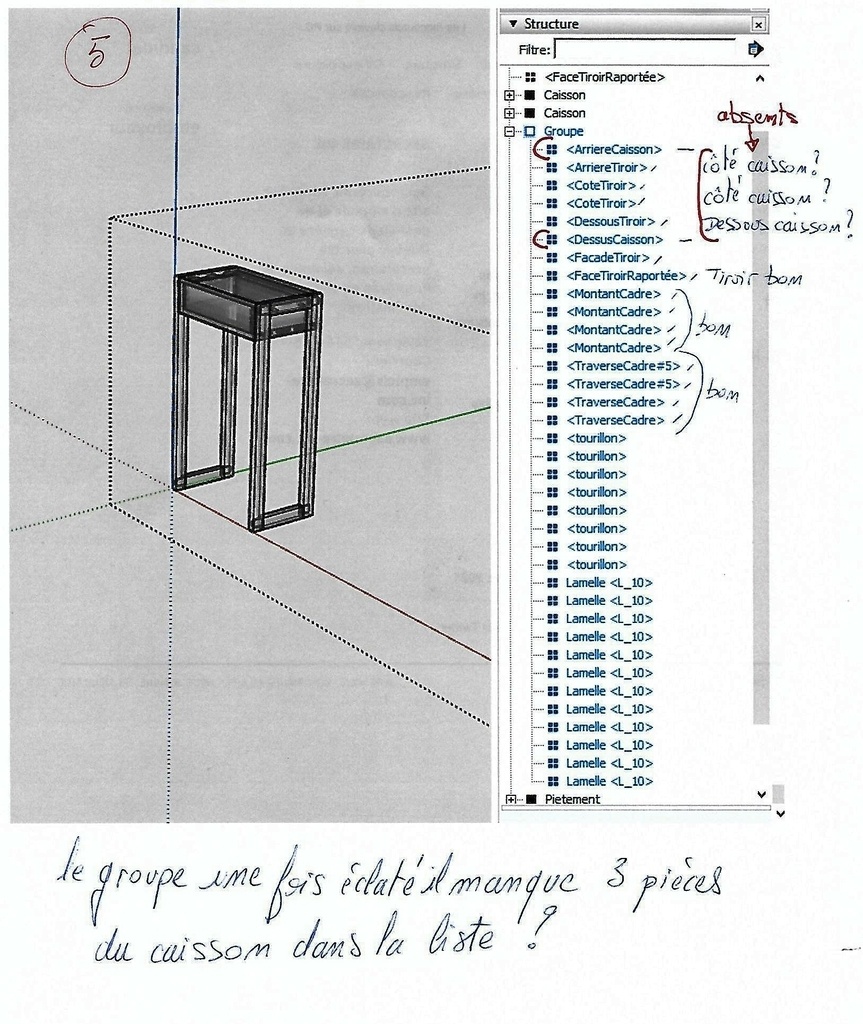 5
Structure
Filtre:
<FaceTiroirRaportée>
Caisson
Caisson
Groupe
absents
<ArriereCaisson> –
<ArriereTiroir>
côté caisson?
<CoteTiroir>
<CoteTiroir>
côté caisson?
<DessousTiroir>
Dessous caisson?
<DessusCaisson> –
<FacadeTiroir>
<FaceTiroirRaportée> Tiroir bon
<MontantCadre>
<MontantCadre>
<MontantCadre> bon
<MontantCadre>
<TraverseCadre#5>
<TraverseCadre#5> bon
<TraverseCadre>
<TraverseCadre>
<tourillon>
<tourillon>
<tourillon>
<tourillon>
<tourillon>
<tourillon>
<tourillon>
<tourillon>
Lamelle <L_10>
Lamelle <L_10>
Lamelle <L_10>
Lamelle <L_10>
Lamelle <L_10>
Lamelle <L_10>
Lamelle <L_10>
Lamelle <L_10>
Lamelle <L_10>
Lamelle <L_10>
Lamelle <L_10>
Lamelle <L_10>
Pietement
le groupe une fois éclaté il manque 3 pièces
du caisson dans la liste ?